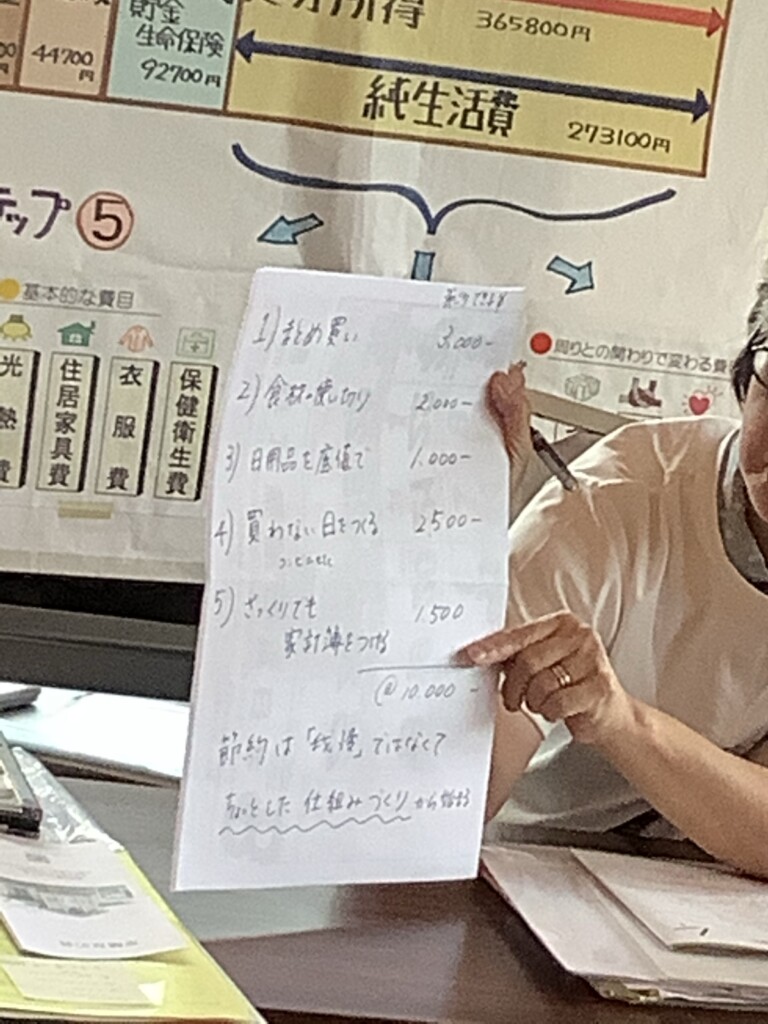 所得
365800円
貯金
44700円
生命保険
92700円
純生活費
273100円
テップ⑤
基本的な費目
周りとの関わりで変わる費
光熱費
住居家具費
衣服費
保健衛生費
1) まとめ買い 3,000-
2) 食材の使い切り 2,000-
3) 日用品を底値で 1,000-
4) 買わない日をつくる 2,500-
5) ざっくりでも 1,500
家計簿をつける
@10,000-
節約は「我慢」ではなくて
ちょっとした仕組みづくりから始まる